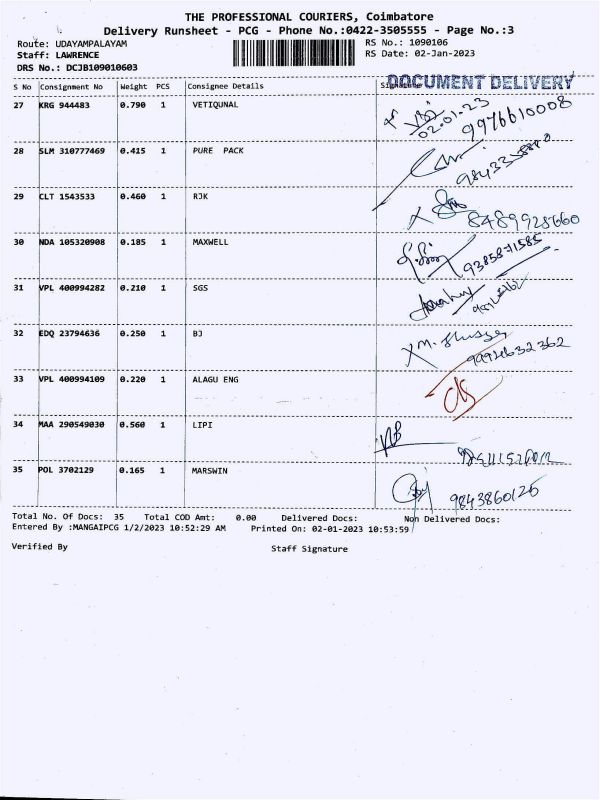 THE PROFESSIONAL COURIERS, Coimbatore
Delivery Runsheet - PCG - Phone No.:0422-3505555 - Page No.:3
Route: UDAYAMPALAYAM
RS No.: 1090106
Staff: LAWRENCE
RS Date: 02-Jan-2023
DRS No.: DCJB109010603
S No Consignment No Weight PCS Consignee Details Signature
DOCUMENT DELIVERY
27 KRG 944483 0.790 1 VETIQUNAL
02.01.23
9976610008
28 SLM 310777469 0.415 1 PURE PACK
29 CLT 1543533 0.460 1 RJK
8489928660
30 NDA 105320908 0.185 1 MAXWELL
9385871585
31 VPL 400994282 0.210 1 SGS
32 EDQ 23794636 0.250 1 BJ
33 VPL 400994109 0.220 1 ALAGU ENG
34 MAA 290549030 0.560 1 LIPI
35 POL 3702129 0.165 1 MARSWIN
9843860126
Total No. Of Docs: 35 Total COD Amt: 0.00 Delivered Docs: Non Delivered Docs:
Entered By :MANGAIPCG 1/2/2023 10:52:29 AM Printed On: 02-01-2023 10:53:59
Verified By Staff Signature